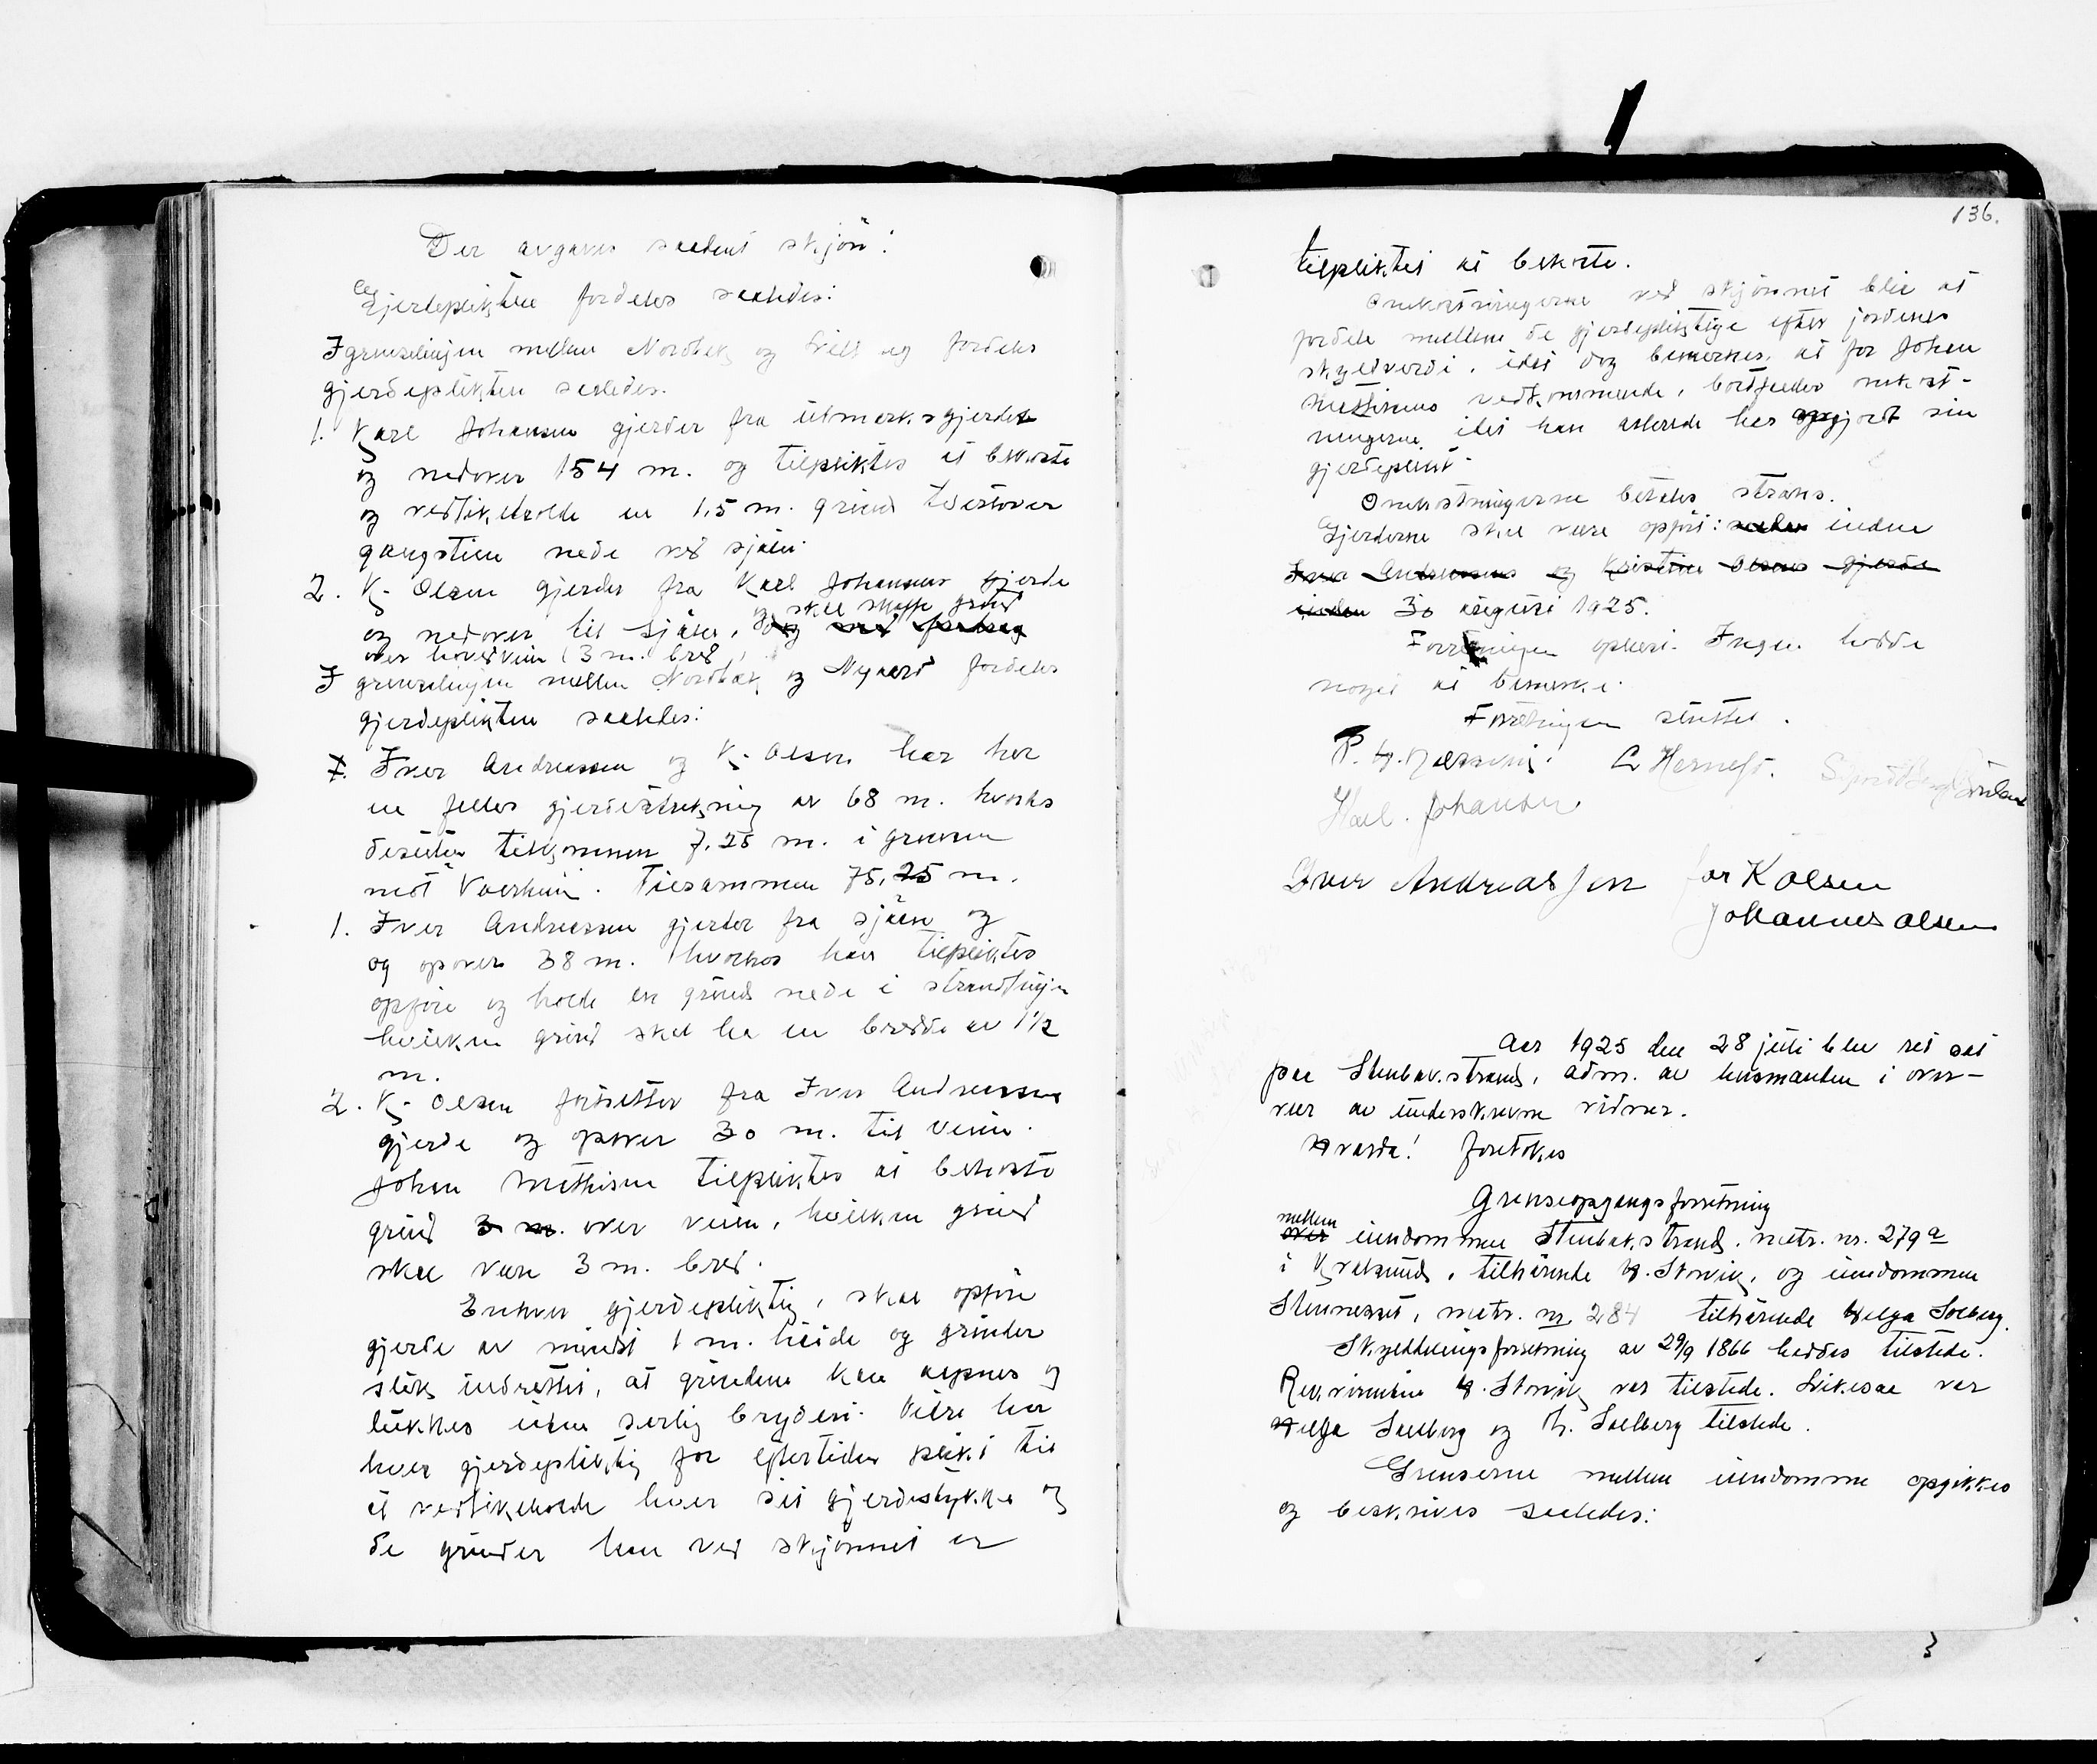 Der avgaves saadant skjøn:
Gjerdeplikten fordeles saaledes:
I grenselinjen mellem Nordbak og fordeles
gjerdeplikten saaledes.
1. Karl Johansen gjerder fra utmarksgjerdet
og nedover 154 m. og tilpliktes at bekoste
og vedlikeholde en 1,5 m. grind tversover
gangstien nede ved sjøen.
2. K. Olsen gjerder fra Karl Johansens gjerde
og skal skaffe grind
og nedover til sjøen,
over hovedveien (3 m. bred)
I grenselinjen mellem Nordbak og Nygaard fordeles
gjerdeplikten saaledes:
Iver Andreassen og K. Olsen har her
en felles gjerdestrekning av 68 m. hvorhos
desuten tilkommer 7,25 m. i grensen
mot . Tilsammen 75,25 m.
1. Iver Andreassen gjerder fra sjøen og
og opover 38 m. hvorhos han tilpliktes
opføre og holde en grind nede i strandlinjen
hvilken grind skal ha en bredde av 1 1/2
m.
2. K. Olsen fortsetter fra Iver Andreassens
gjerde og opover 30 m. til veien.
Johan Mathisen tilpliktes at bekoste
grind 3 m. over veien, hvilken grind
skal være 3 m. bred.
Enhver gjerdepliktig, skal opføre
gjerde av mindst 1 m. høide og grinder
slik indrettet, at grindene kan aapnes og
lukkes uten særlig bryderi. Videre har
hver gjerdepliktig for eftertiden plikt til
at vedlikeholde hver sit gjerdestykke og
de grinder han ved skjønnet er
136.
tilpliktet at bekoste.
Omkostningerne ved skjønnet blir at
fordele mellem de gjerdepliktige efter jordenes
skyldverdi, idet dog bemerkes, at for Johan
Mathisens vedkommende, bortfalder omkost-
ningerne, idet han allerede har opgjort sin
gjerdeplikt.
Omkostningerne betales straks.
Gjerderne skal være opført: inden
Iver Andreassens og Kristine Olsens gjerde
inden 30 august 1925.
Forretningen oplæst. Ingen hadde
noget at bemerke.
Forretningen sluttet.
Karl. Johansen
Iver Andreassen for K Olsen
Johannes Olsen
Aar 1925 den 28 juli blev ret sat
paa Stenbakstrand, adm. av lensmanden i over-
vær av underskrevne vidner.
Hvorda! foretokes
Grenseopgangsforretning
mellem
over eiendommen Stenbakstrand, matr. nr. 279 a
i Kvalsund, tilhørende H. Storvik, og eiendommen
Stennesset, matr. nr. 284 tilhørende Helga Solberg.
Skylddelingsforretning av 29/9 1866 haddes tilstede.
Rekvirenten H. Storvik var tilstede. Likesaa var
Helga Saelberg og H. Saelberg tilstede.
Grenserne mellem eiendomme opgikkes
og beskrives saaledes: